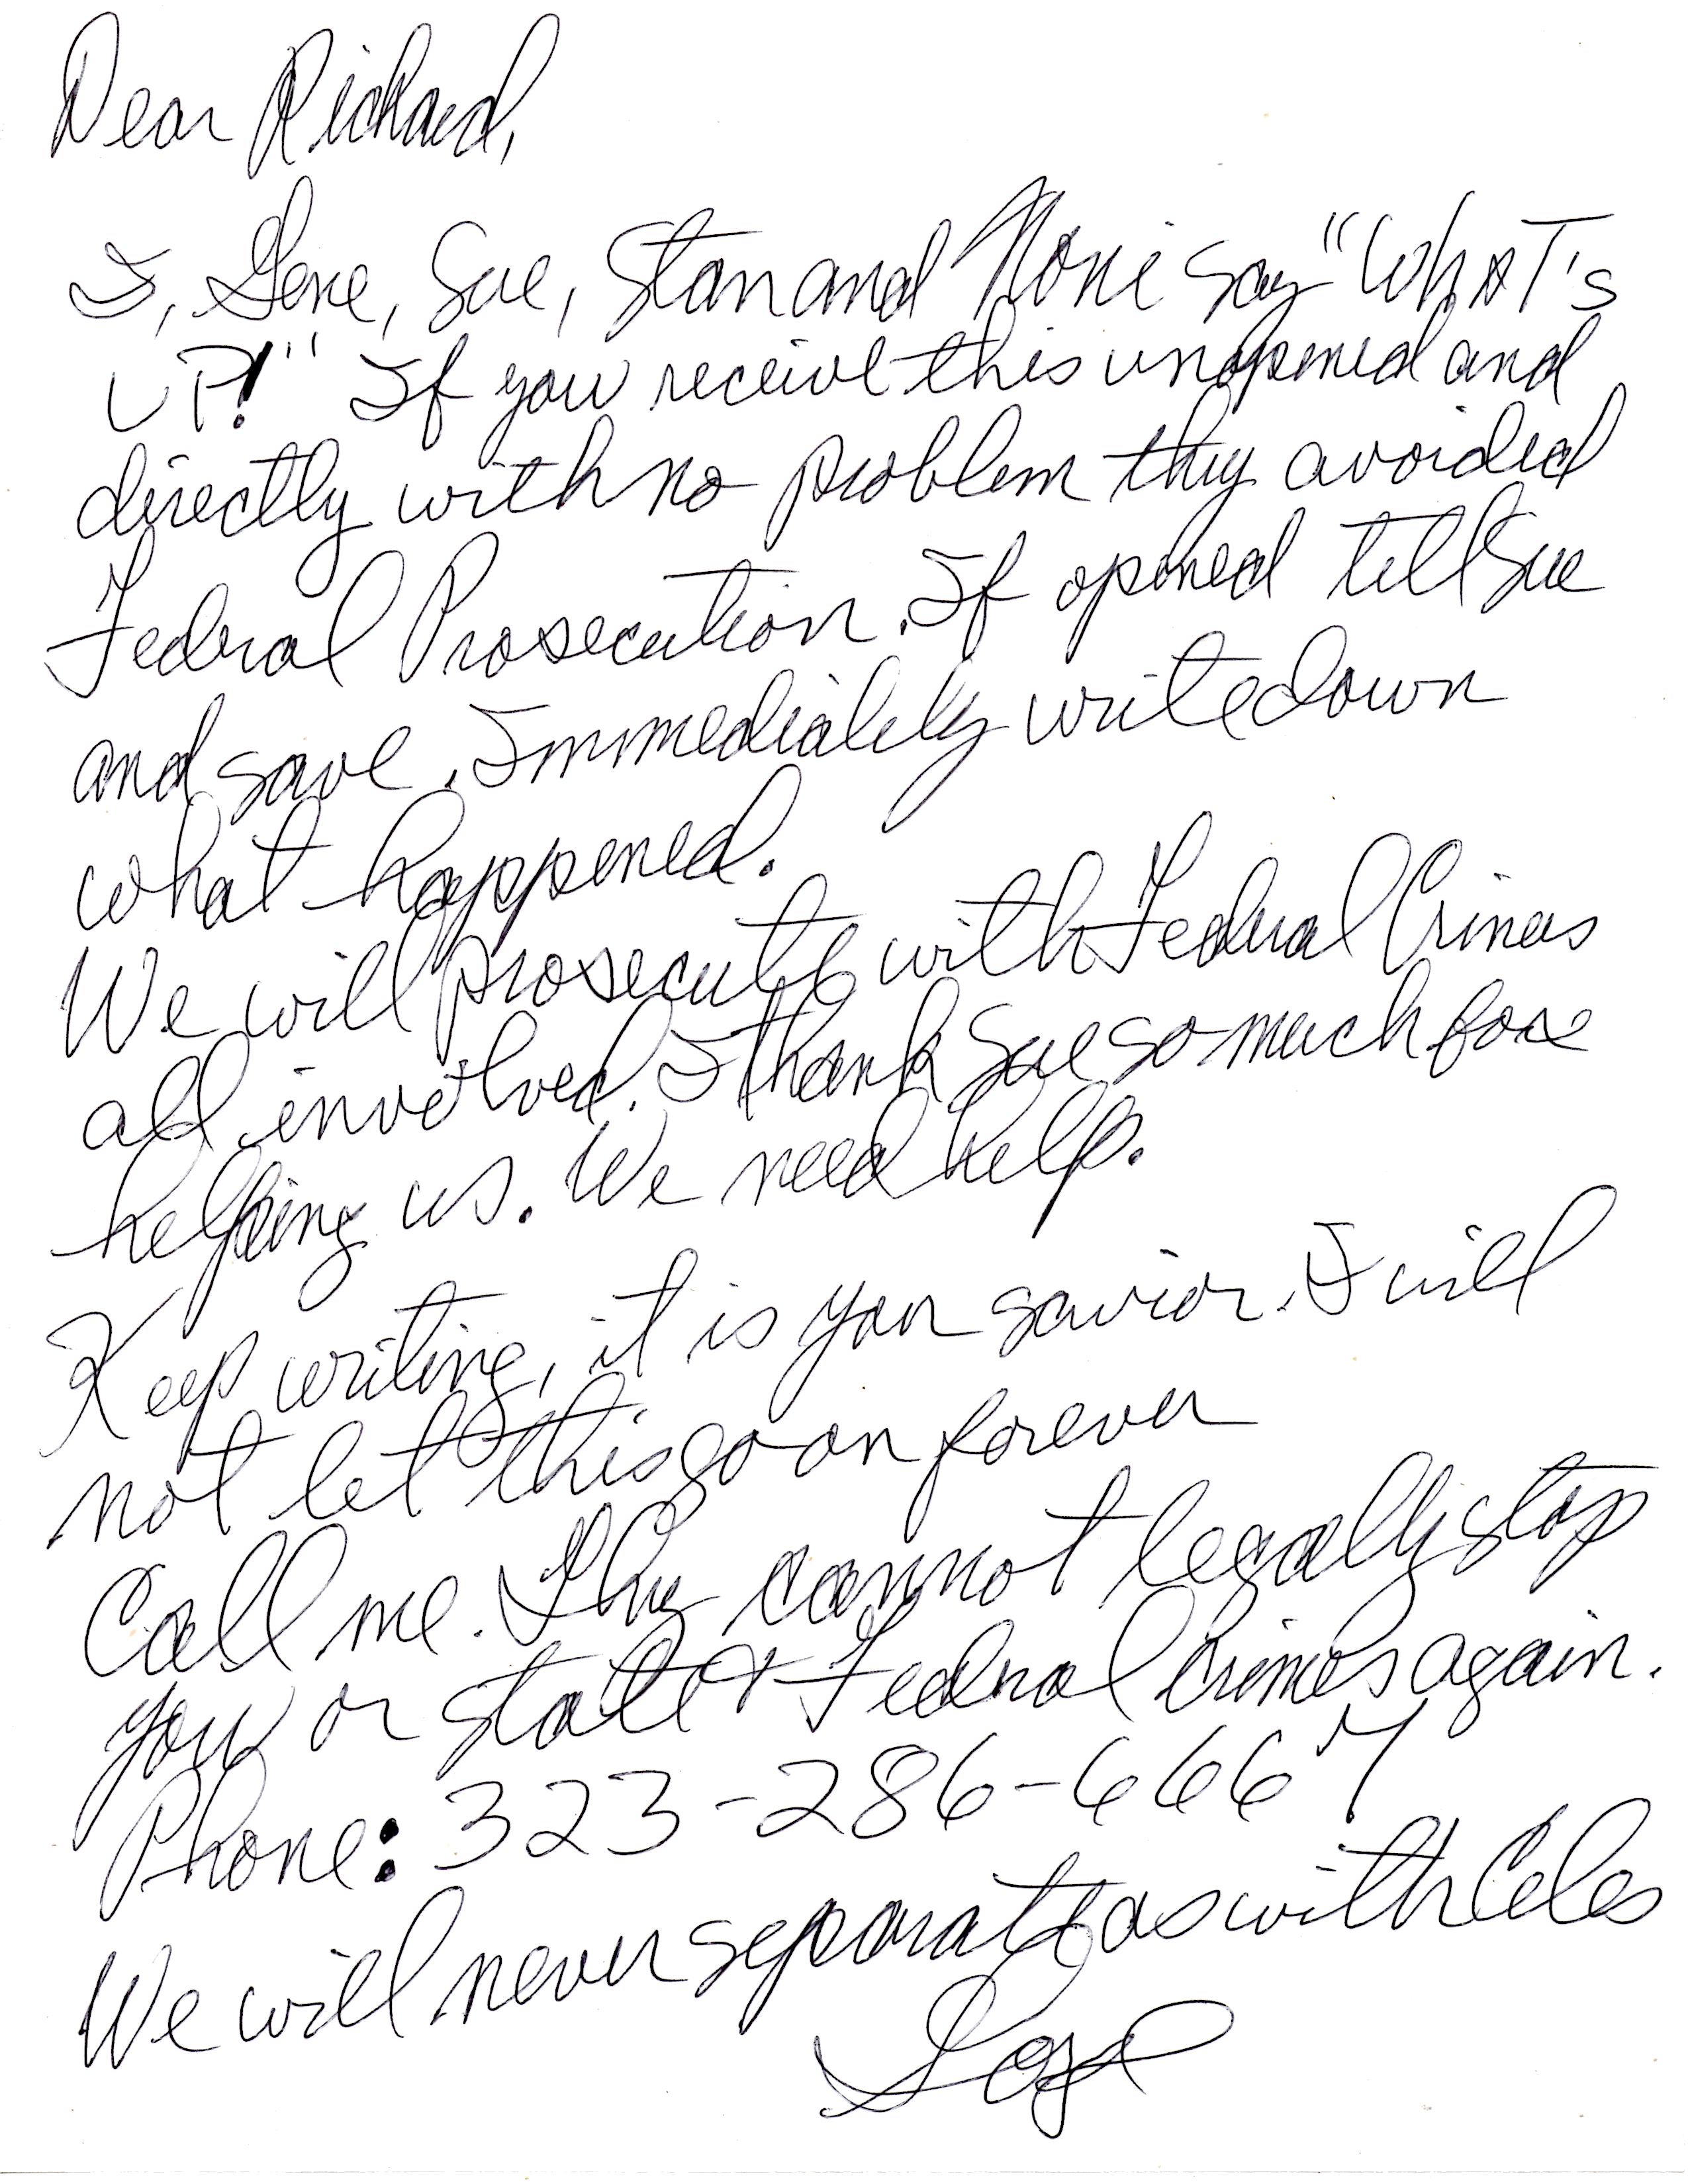 Dear Richard,
I, Gene, Sue, Stan and Noni say "WhAT's
UP!" If you receive this unopened and
directly with no problem they avoided
Federal Prosecution. If opened tell Sue
and save. Immediately write down
what happened.
We will prosecute with Federal Crimes
all involved. I thank Sue so much for
helping us. We need help.
Keep writing, it is your savior. I will
not let this go on forever
Call me. They cannot legally stop
you or state & Federal Crimes again.
Phone: 323-286-6667
We will never separate as with